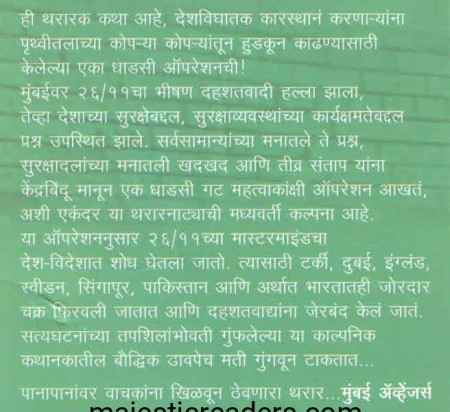 ही थरारक कथा आहे, देशविघातक कारस्थानं करणाऱ्यांना
पृथ्वीतलाच्या कोपऱ्या कोपऱ्यांतून हुडकून काढण्यासाठी
केलेल्या एका धाडसी ऑपरेशनची!
मुंबईवर २६/११चा भीषण दहशतवादी हल्ला झाला,
तेव्हा देशाच्या सुरक्षेबद्दल, सुरक्षाव्यवस्थांच्या कार्यक्षमतेबद्दल
प्रश्न उपस्थित झाले. सर्वसामान्यांच्या मनातले ते प्रश्न,
सुरक्षादलांच्या मनातली खदखद आणि तीव्र संताप यांना
केंद्रबिंदू मानून एक धाडसी गट महत्वाकांक्षी ऑपरेशन आखतं,
अशी एकंदर या थरारनाट्याची मध्यवर्ती कल्पना आहे.
या ऑपरेशननुसार २६/११च्या मास्टरमाइंडचा
देश-विदेशात शोध घेतला जातो. त्यासाठी टर्की, दुबई, इंग्लंड,
स्वीडन, सिंगापूर, पाकिस्तान आणि अर्थात भारतातही जोरदार
चक्रं फिरवली जातात आणि दहशतवाद्यांना जेरबंद केलं जातं.
सत्यघटनांच्या तपशिलांभोवती गुंफलेल्या या काल्पनिक
कथानकातील बौद्धिक डावपेच मती गुंगवून टाकतात...
पानापानांवर वाचकांना खिळवून ठेवणारा थरार...मुंबई ॲव्हेंजर्स
majesticreaders.com